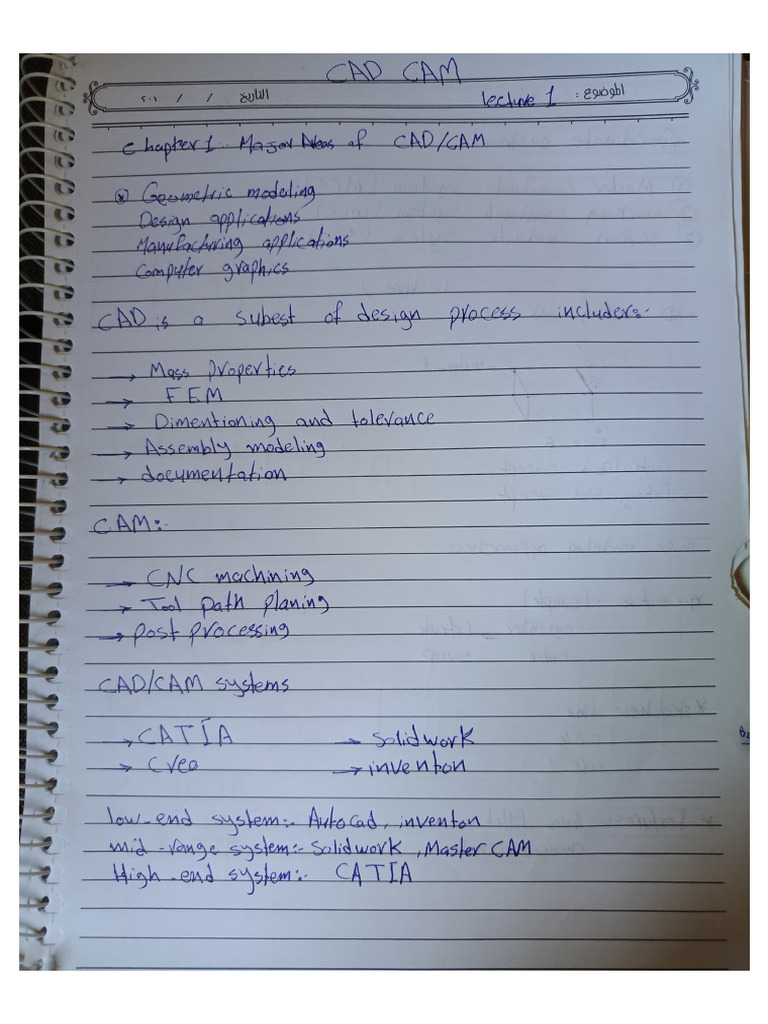 CAD CAM
الموضوع : lecture 1 التاريخ / / ٢٠١
Chapter 1 Major Areas of CAD/CAM
Geometric modeling
Design applications
Manufacturing applications
Computer graphics
CAD is a subest of design process includers:-
→ Mass properties
→ FEM
→ Dimentioning and tolerance
→ Assembly modeling
→ documentation
CAM:-
→ CNC machining
→ Tool path planing
→ post processing
CAD/CAM systems
→ CATIA → Solidwork
→ Creo → inventon
low-end system:- AutoCad, inventon
mid-range system:- Solidwork, Master CAM
High-end system:- CATIA